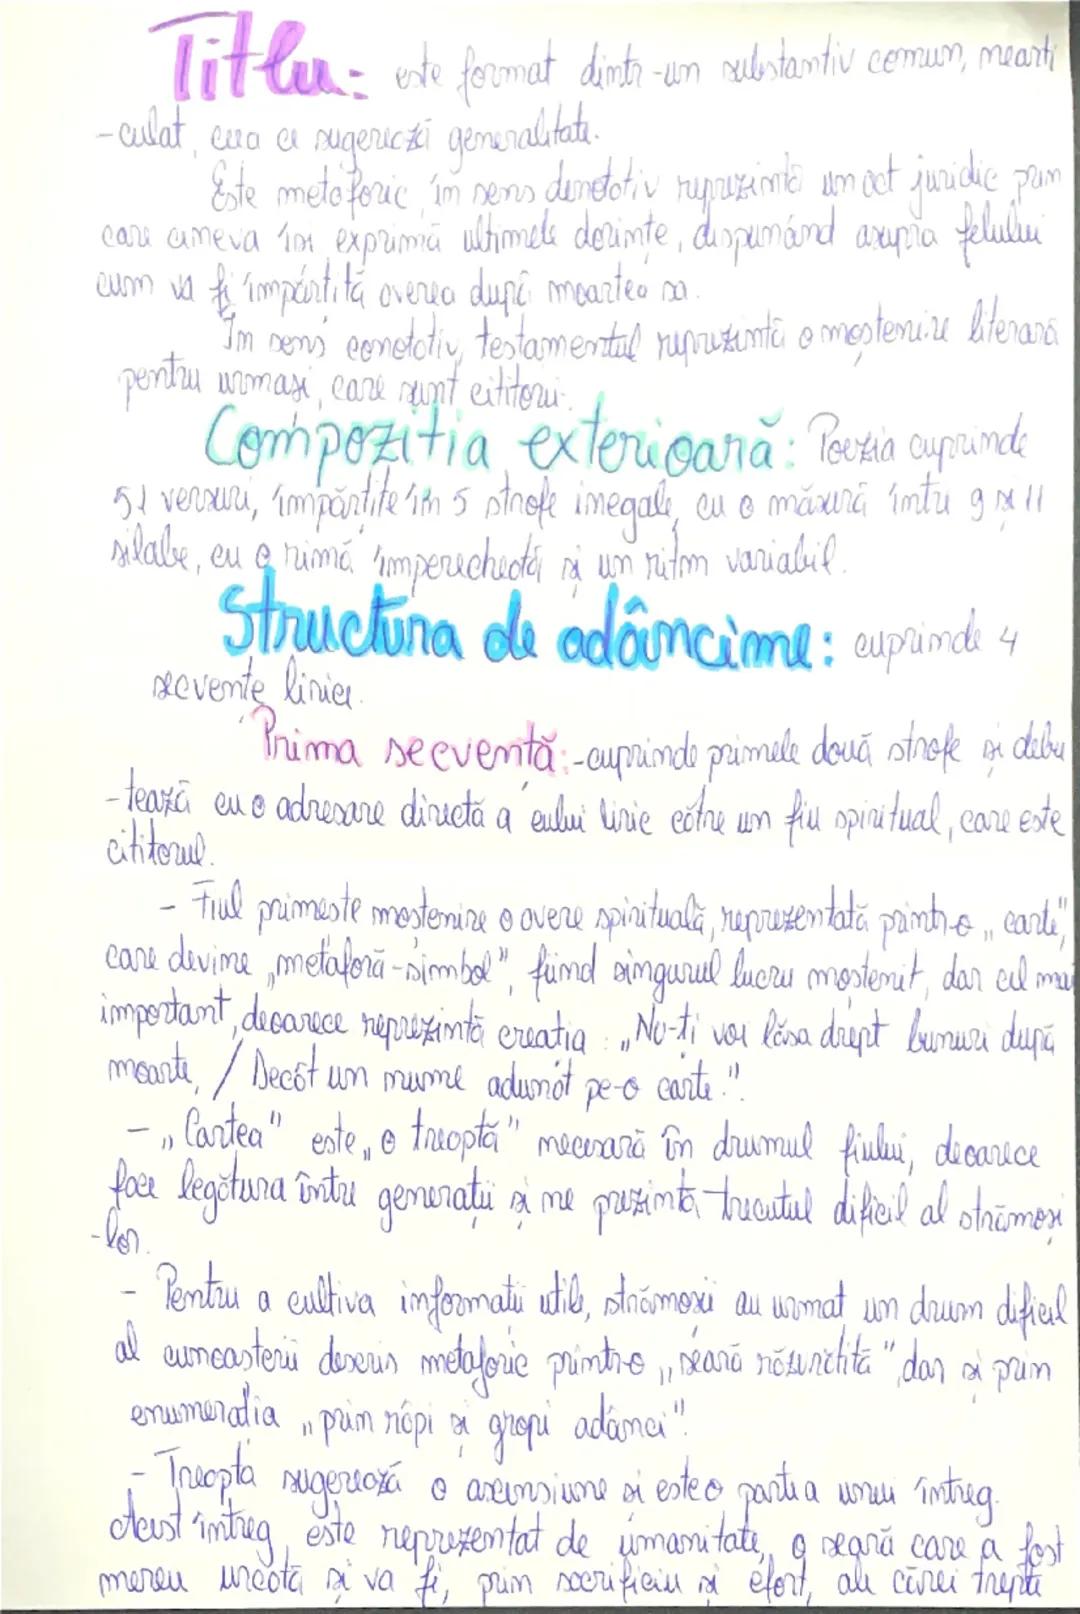 Titlu: este format dintr-un substantiv comun, nearti
-culat, ceea ce sugerează generalitate.
Este metaforic, în sens denotativ reprezintă un act juridic prin
care cineva își exprimă ultimele dorințe, dispunând asupra felului
cum va fi împărțită averea după moartea sa.
În sens conotativ, testamentul reprezintă o moștenire literară
pentru urmași, care sunt cititorii.
Compoziția exterioară: Poezia cuprinde
51 versuri, împărțite în 5 strofe inegale, cu o măsură între 9 și 11
silabe, cu o rimă împerecheată și un ritm variabil.
Structura de adâncime: cuprinde 4
secvențe lirice.
Prima secvență: -cuprinde primele două strofe și debu
-tează cu o adresare directă a eului liric către un fiu spiritual, care este
cititorul.
- Fiul primește moștenire o avere spirituală, reprezentată printr-o „carte",
care devine „metaforă-simbol", fiind singurul lucru moștenit, dar cel mai
important, deoarece reprezintă creația: „Nu-ți voi lăsa drept bunuri după
moarte, / Decât un nume adunat pe-o carte.".
- „Cartea" este „o treaptă" necesară în drumul fiului, deoarece
face legătura între generații și ne prezintă trecutul dificil al strămoși
-lor.
- Pentru a cultiva informații utile, strămoșii au urmat un drum dificil
al cunoașterii descris metaforic printr-o „seară răzvrătită", dar și prin
enumerația „prin râpi și gropi adânci".
- Treapta sugerează o ascensiune și este o parte a unui întreg.
Acest întreg, este reprezentat de umanitate, o scară care a fost
mereu urcată și va fi, prin sacrificiu și efort, ale cărei trepte